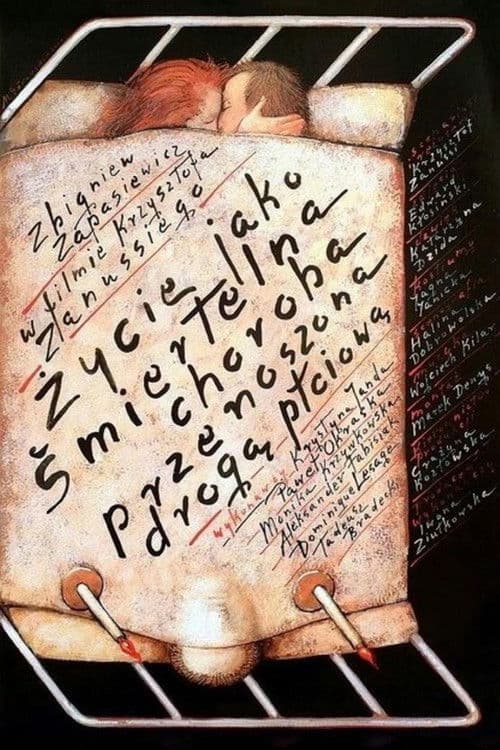 Zbigniew
Zapasiewicz
w filmie Krzysztofa
Zanussiego
Życie jako
śmiertelna
choroba
przenoszona
drogą płciową
wykonawcy Krystyna Janda
Paweł Okraska
Monika Krzywkowska
Aleksander Fabisiak
Dominique Lesage
Tadeusz
Bradecki
Krzysztof
Zanussi
Edward
Kłosiński
Katarzyna
Jagna
Janicka
Halina
Dobrowolska
Wojciech Kilar
Marek Denys
Grażyna
Kozłowska
Iwona
Ziułkowska